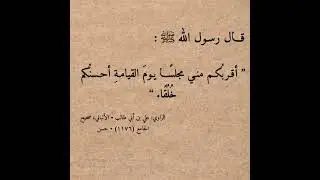 قال رسول الله ﷺ :
" أقربُكم مني مجلسًا يومَ القيامةِ أحسنُكم
خُلُقًا. "
الراوي: علي بن أبي طالب • الألباني، صحيح
الجامع (١١٧٦) • حسن